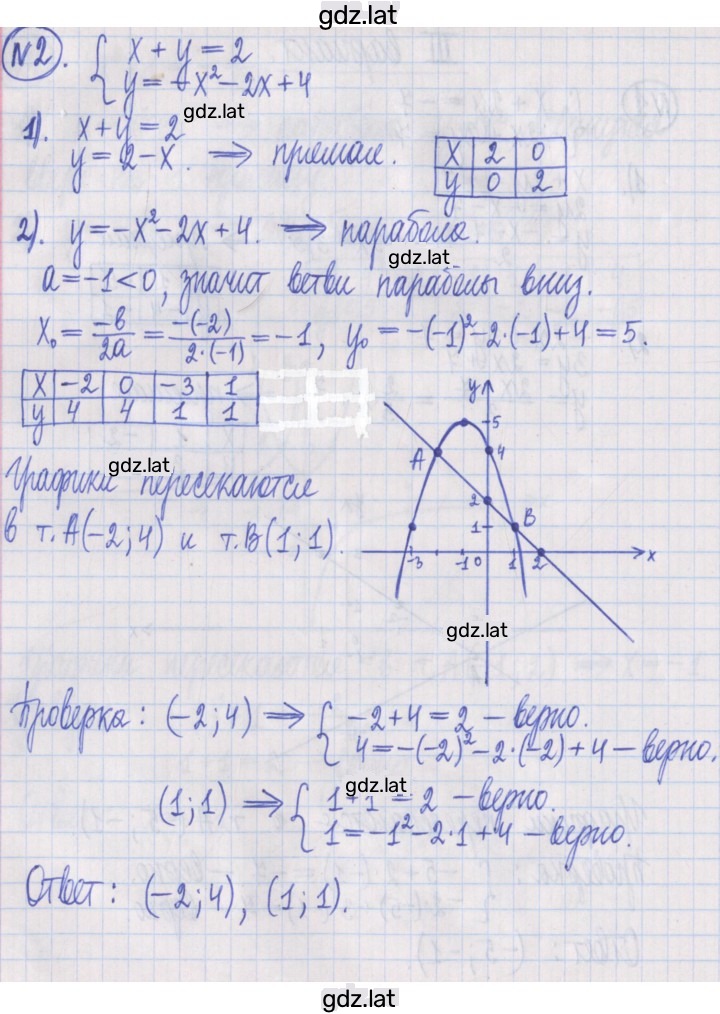 gdz.lat
№2. { x + y = 2
y = -x² - 2x + 4
gdz.lat
1). x + y = 2
y = 2 - x. ⟹ прямая.
x 2 0
y 0 2
2). y = -x² - 2x + 4. ⟹ парабола.
gdz.lat
a = -1 < 0, значит ветви параболы вниз.
x₀ = -b/2a = -(-2)/2·(-1) = -1, y₀ = -(-1)² - 2·(-1) + 4 = 5.
x -2 0 -3 1
y 4 4 1 1
gdz.lat
Графики пересекаются
в т. A(-2; 4) и т. B(1; 1).
y
5
A 4
2
1 B
-3 -1 0 1 2 x
gdz.lat
Проверка: (-2; 4) ⟹ { -2 + 4 = 2 - верно.
4 = -(-2)² - 2·(-2) + 4 - верно.
gdz.lat
(1; 1) ⟹ { 1 + 1 = 2 - верно.
1 = -1² - 2·1 + 4 - верно.
Ответ: (-2; 4), (1; 1).
gdz.lat